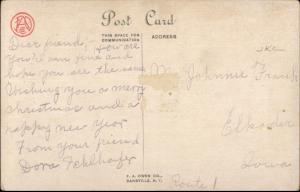 Post Card
THIS SPACE FOR
COMMUNICATION
ADDRESS
Dear friend,
How are
you? am fine and
hope you are the same
Wishing you a merry
Christmas and a
happy new year
From your friend
Dora Fehlhafer
Mr. Johnnie Frank
Elkader
Iowa
Route 1
F. A. OWEN CO.,
DANSVILLE, N. Y.